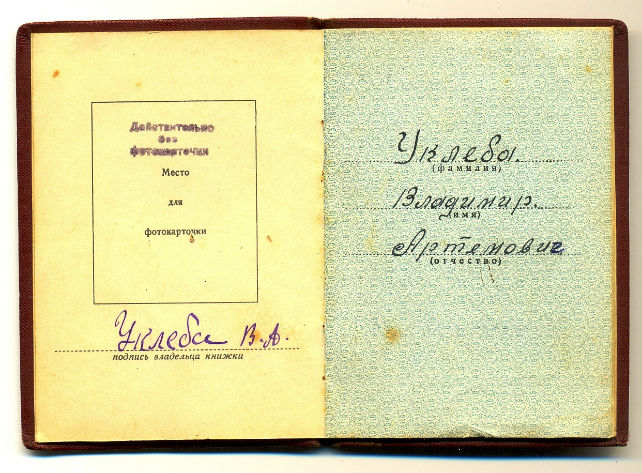 Действительно
без
фотокарточки
Место
для
фотокарточки
Уклеба В.А.
подпись владельца книжки
Уклеба.
(фамилия)
Владимир.
(имя)
Артемович
(отчество)